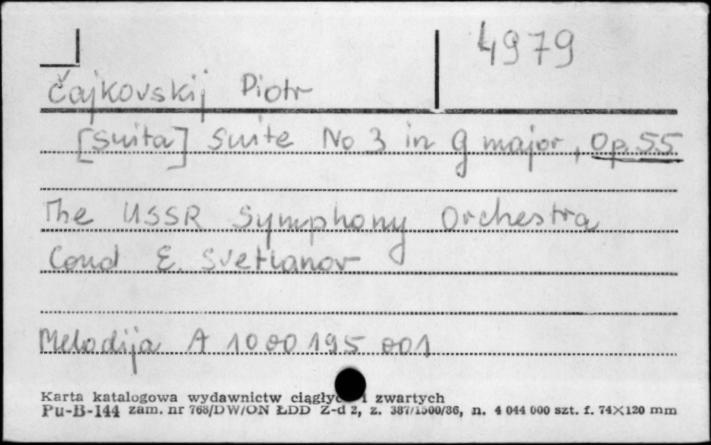 4979
Čajkovskij Piotr
[Suita] Suite No 3 in G major, Op. 55
The USSR Symphony Orchestra
Cond E. Svetlanov
Melodija A 1000195 001
Karta katalogowa wydawnictw ciągłych i zwartych
Pu-B-144 zam. nr 768/DW/ON ŁDD Z-d 2, z. 387/1500/86, n. 4 044 000 szt. f. 74×120 mm